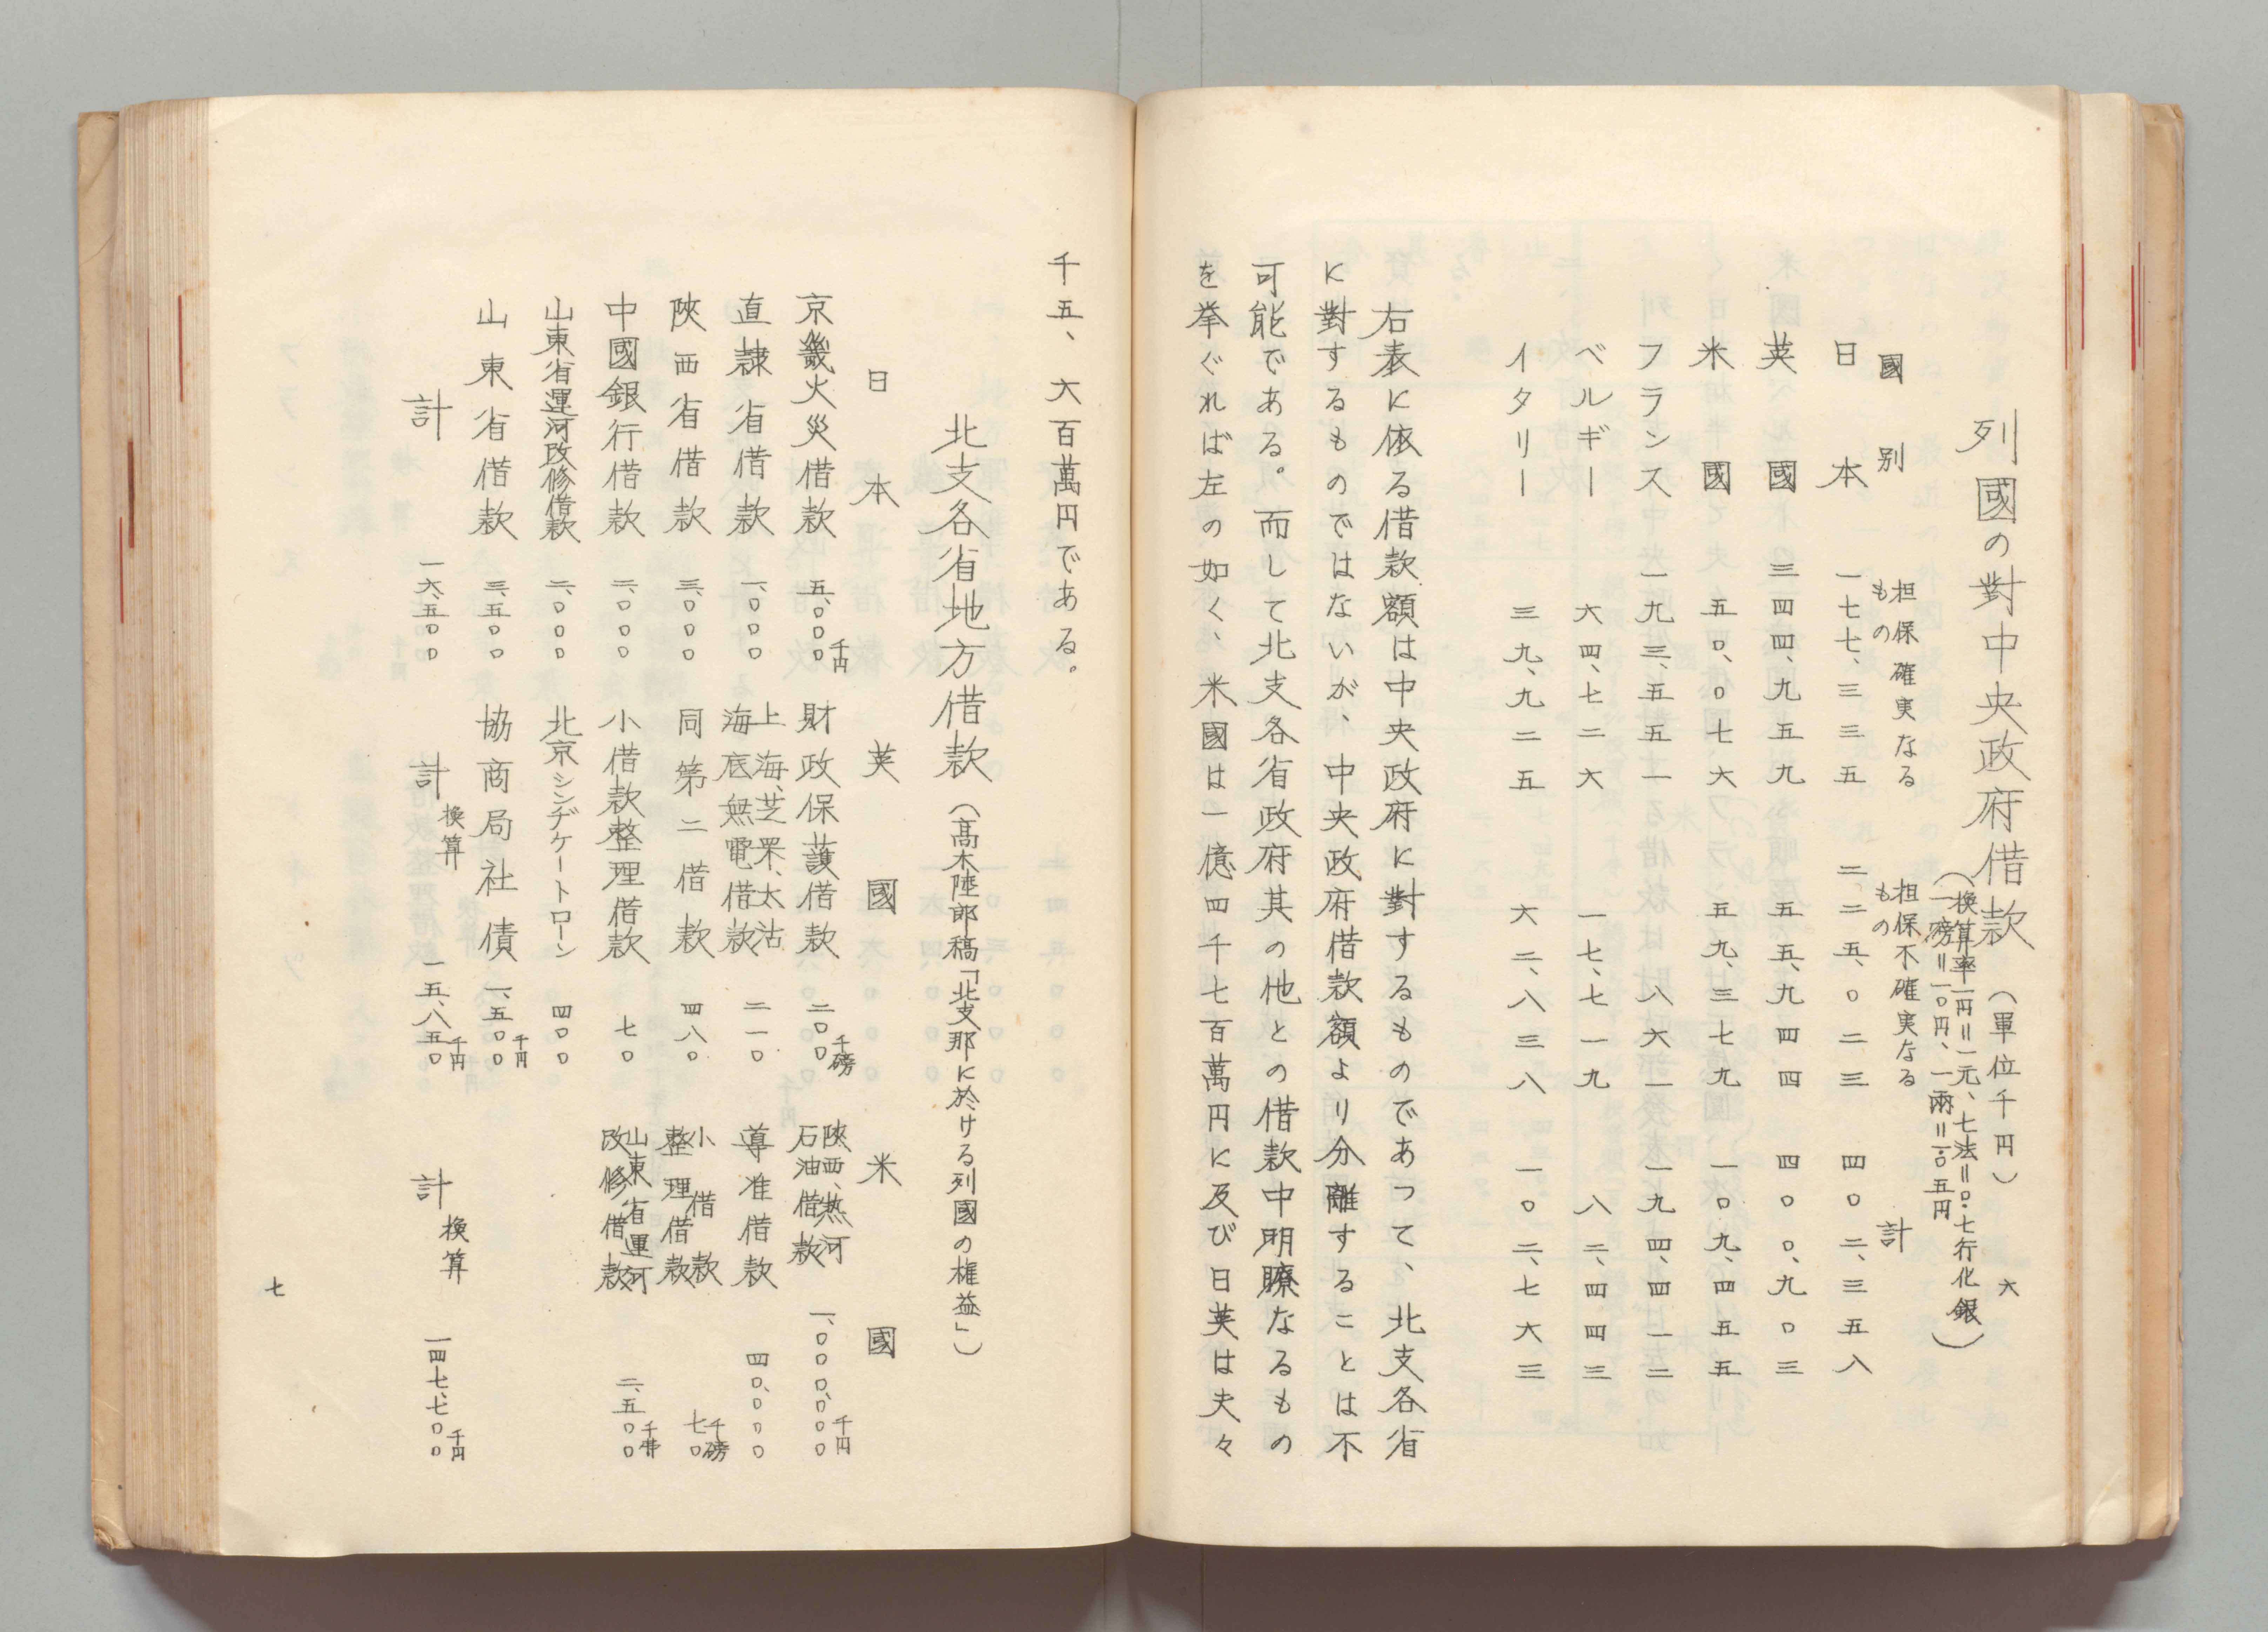 六
列國の對中央政府借款（單位千円）
（換算率一円＝一元、七法＝〇・七行化銀
一磅＝一〇円、一兩＝一・〇五円）
國別　担保確実なるもの　担保不確実なるもの　計
日本　一七七、三三五　二二五、〇二三　四〇二、三五八
英國　三四四、九五九　五五、九四四　四〇〇、九〇三
米國　五〇、〇七六　五九、三七九　一〇九、四五五
フランス　一九三、五五一　八六一　一九四、四一二
ベルギー　六四、七二六　一七、七一九　八二、四四三
イタリー　三九、九二五　六二、八三八　一〇二、七六三
右表に依る借款額は中央政府に對するものであつて、北支各省
に對するものではないが、中央政府借款額より分離することは不
可能である。而して北支各省政府其の他との借款中明瞭なるもの
を挙ぐれば左の如く、米國は一億四千七百萬円に及び日英は夫々
千五、六百萬円である。
北支各省地方借款（髙木陸郎稿「北支那に於ける列國の權益」）
日本　英國　米國
京畿火災借款　五、〇〇〇千円　財政保護借款　二〇〇千磅　陜西、熱河石油借款　一、〇〇〇、〇〇〇千円
直隷省借款　一、〇〇〇　上海、芝罘、太沽海底無電借款　二一〇　導准借款　四〇、〇〇〇
陜西省借款　三、〇〇〇　同第二借款　四八〇　小借款整理借款　七〇千磅
中國銀行借款　二、〇〇〇　小借款整理借款　七〇　山東省運河改修借款　二、五〇〇千弗
山東省運河改修借款　二、〇〇〇　北京シンヂケートローン　四〇〇
山東省借款　三、五〇〇　協商局社債　一、五〇〇千円
計　一六、五〇〇　計換算　一五、八五〇千円　計換算　一四七、七〇〇千円
七